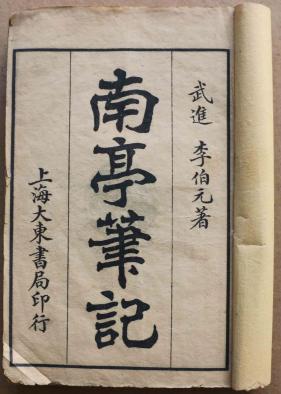 武進 李伯元著
南亭筆記
上海大東書局印行